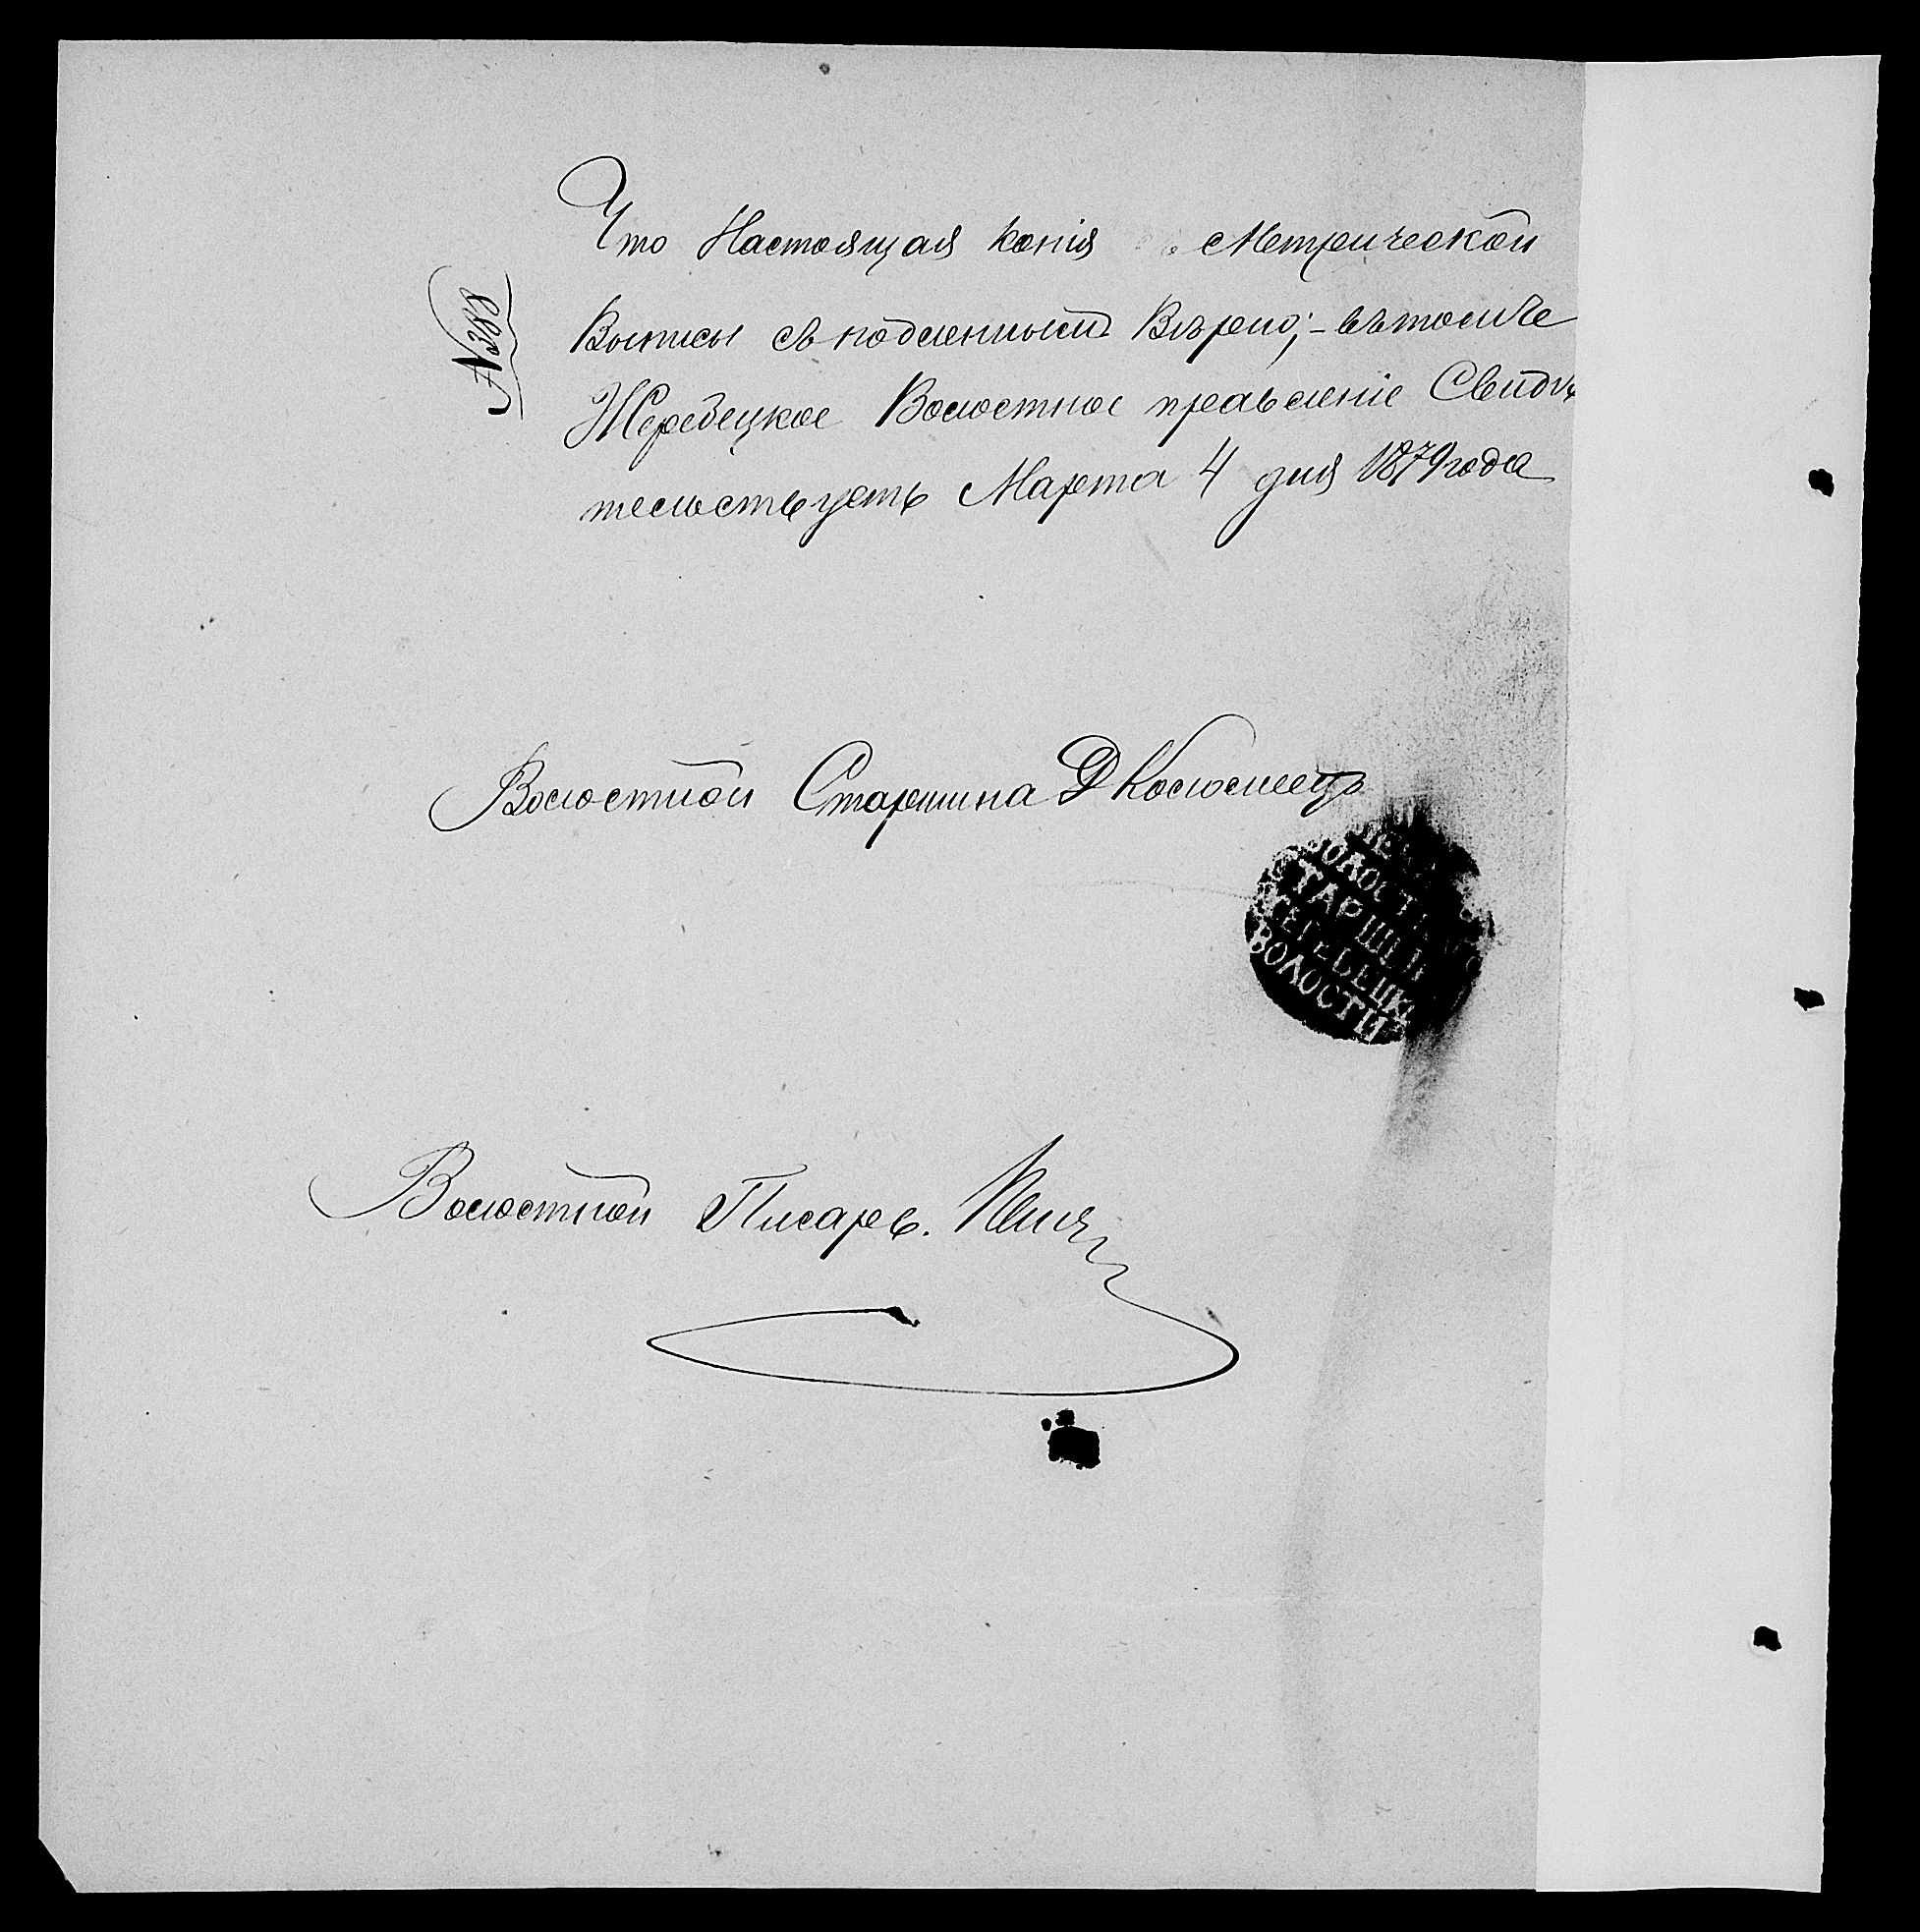 Что Настоящая копія Метрической
№ 388
Выписи съ подленной Вѣрно; – въ томъ же
Жеребецкое Волостное правленіе Свидѣ
тельствуетъ Марта 4 дня 1879 года
Волостной Старшина Д Коломеецъ
ВОЛОСТ
СТАРШИ
ЕРЕБЕЦК
ВОЛОСТИ
Волостной Писарь.